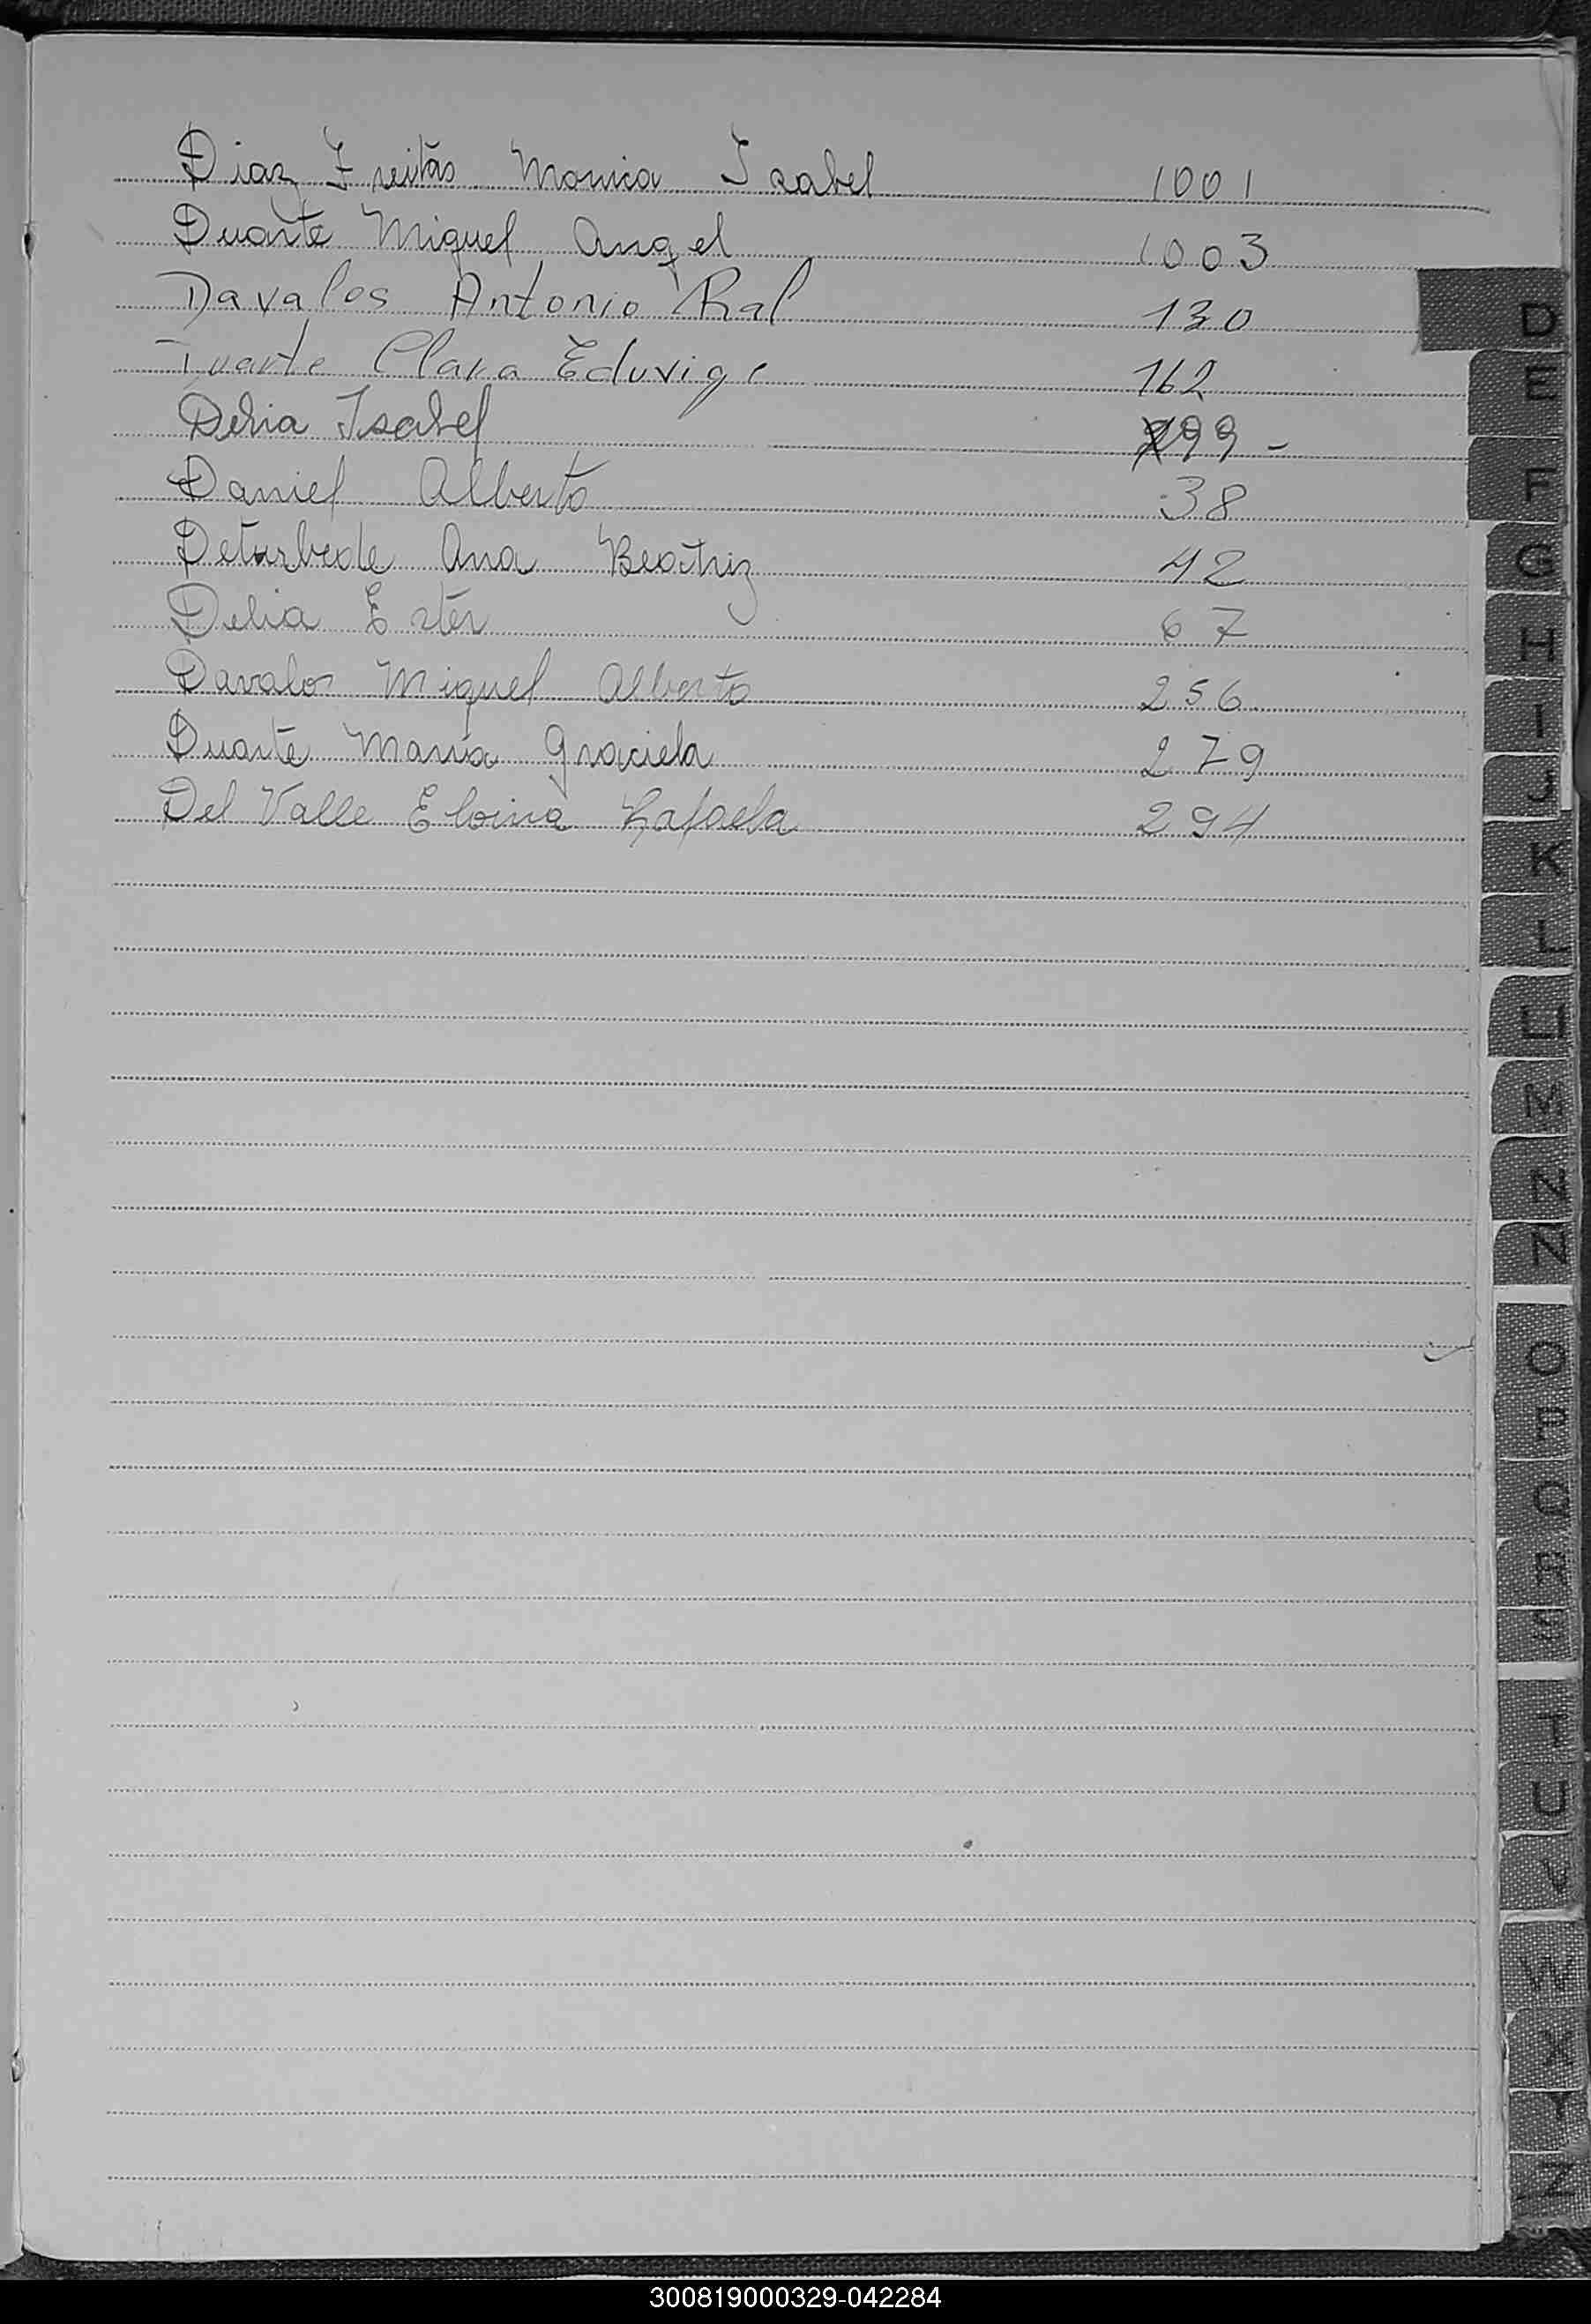 Diaz Freitas Monica Isabel 1001
Duarte Miguel Angel 1003
Davalos Antonio Ral 130
Duarte Clara Eduvige 162
Delia Isabel 199 -
Daniel Alberto 38
Ana Beatriz 42
Delia Ester 67
Davalos Miguel Alberto 256
Duarte María Graciela 279
Del Valle Eloina Rafaela 294
D
E
F
G
H
I
J
K
L
LL
M
N
Ñ
O
P
Q
R
S
T
U
V
W
X
Y
Z
300819000329-042284